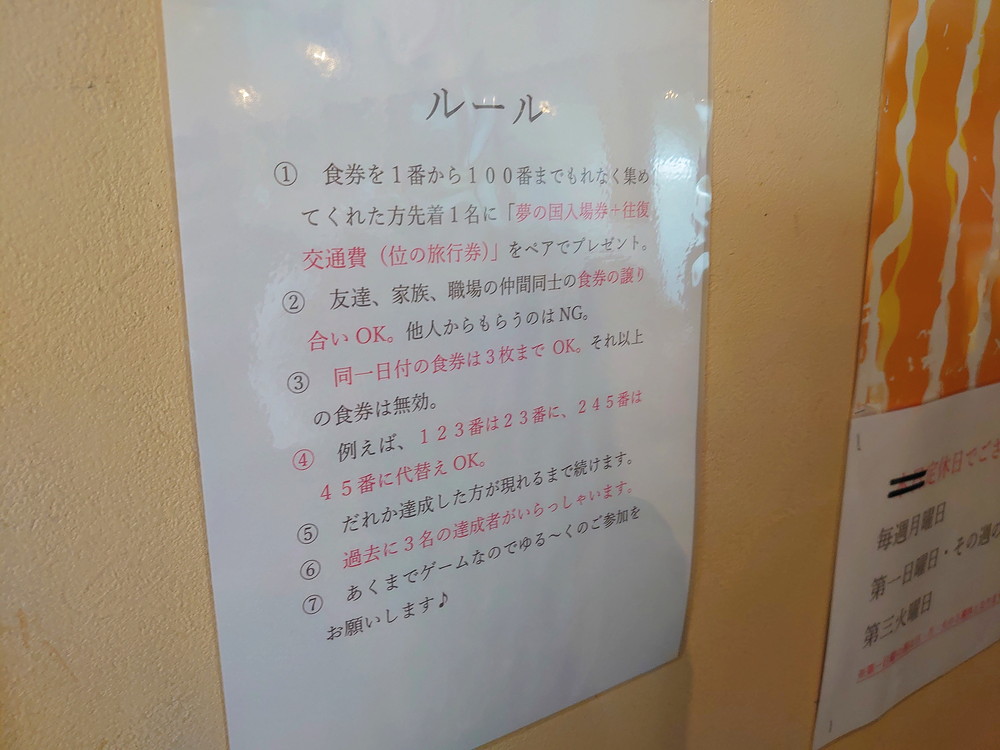 ルール
① 食券を１番から１００番までもれなく集め
てくれた方先着１名に「夢の国入場券＋往復
交通費（位の旅行券）」をペアでプレゼント。
② 友達、家族、職場の仲間同士の食券の譲り
合いOK。他人からもらうのはNG。
③ 同一日付の食券は３枚までOK。それ以上
の食券は無効。
④ 例えば、１２３番は２３番に、２４５番は
４５番に代替えOK。
⑤ だれか達成した方が現れるまで続けます。
⑥ 過去に３名の達成者がいらっしゃいます。
⑦ あくまでゲームなのでゆる〜くのご参加を
お願いします♪
定休日でござ
毎週月曜日
第一日曜日・その週の
第三火曜日